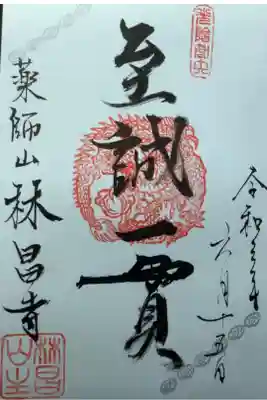 令和三年六月十五日
至誠一貫
薬師山 林昌寺
林昌
山主